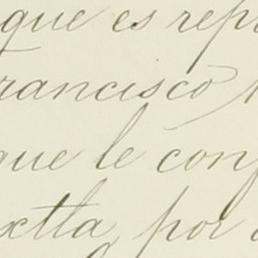 que es rep
rancisco
que le conf
xtla, por